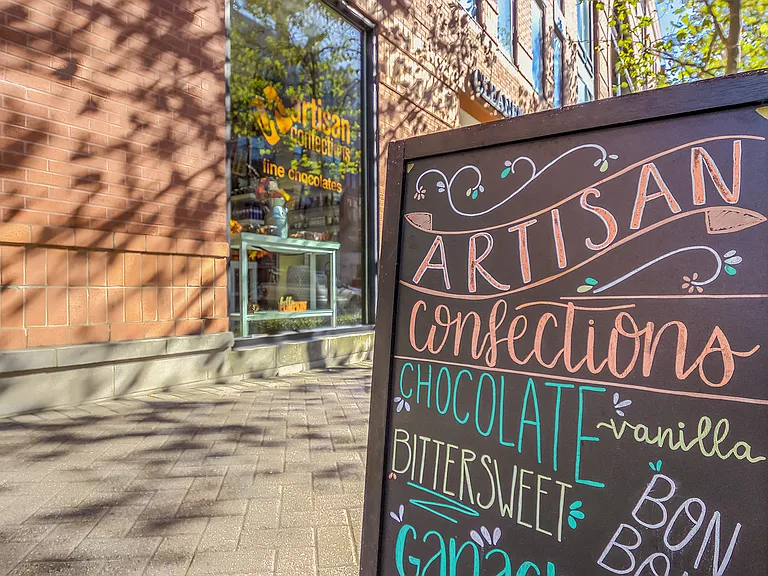 artisan
confections
fine chocolates
ARTISAN
Confections
CHOCOLATE
vanilla
BITTERSWEET
BON